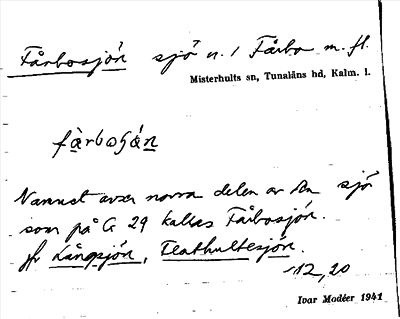 Fårbosjön sjö n. / Fårbo m. fl.
Misterhults sn, Tunaläns hd, Kalm. l.
fàrboʃǿn
Namnet avser norra delen av den sjö
som på G 29 kallas Fårbosjön.
Jfr Långsjön, Flathultesjön.
12,20
Ivar Modéer 1941